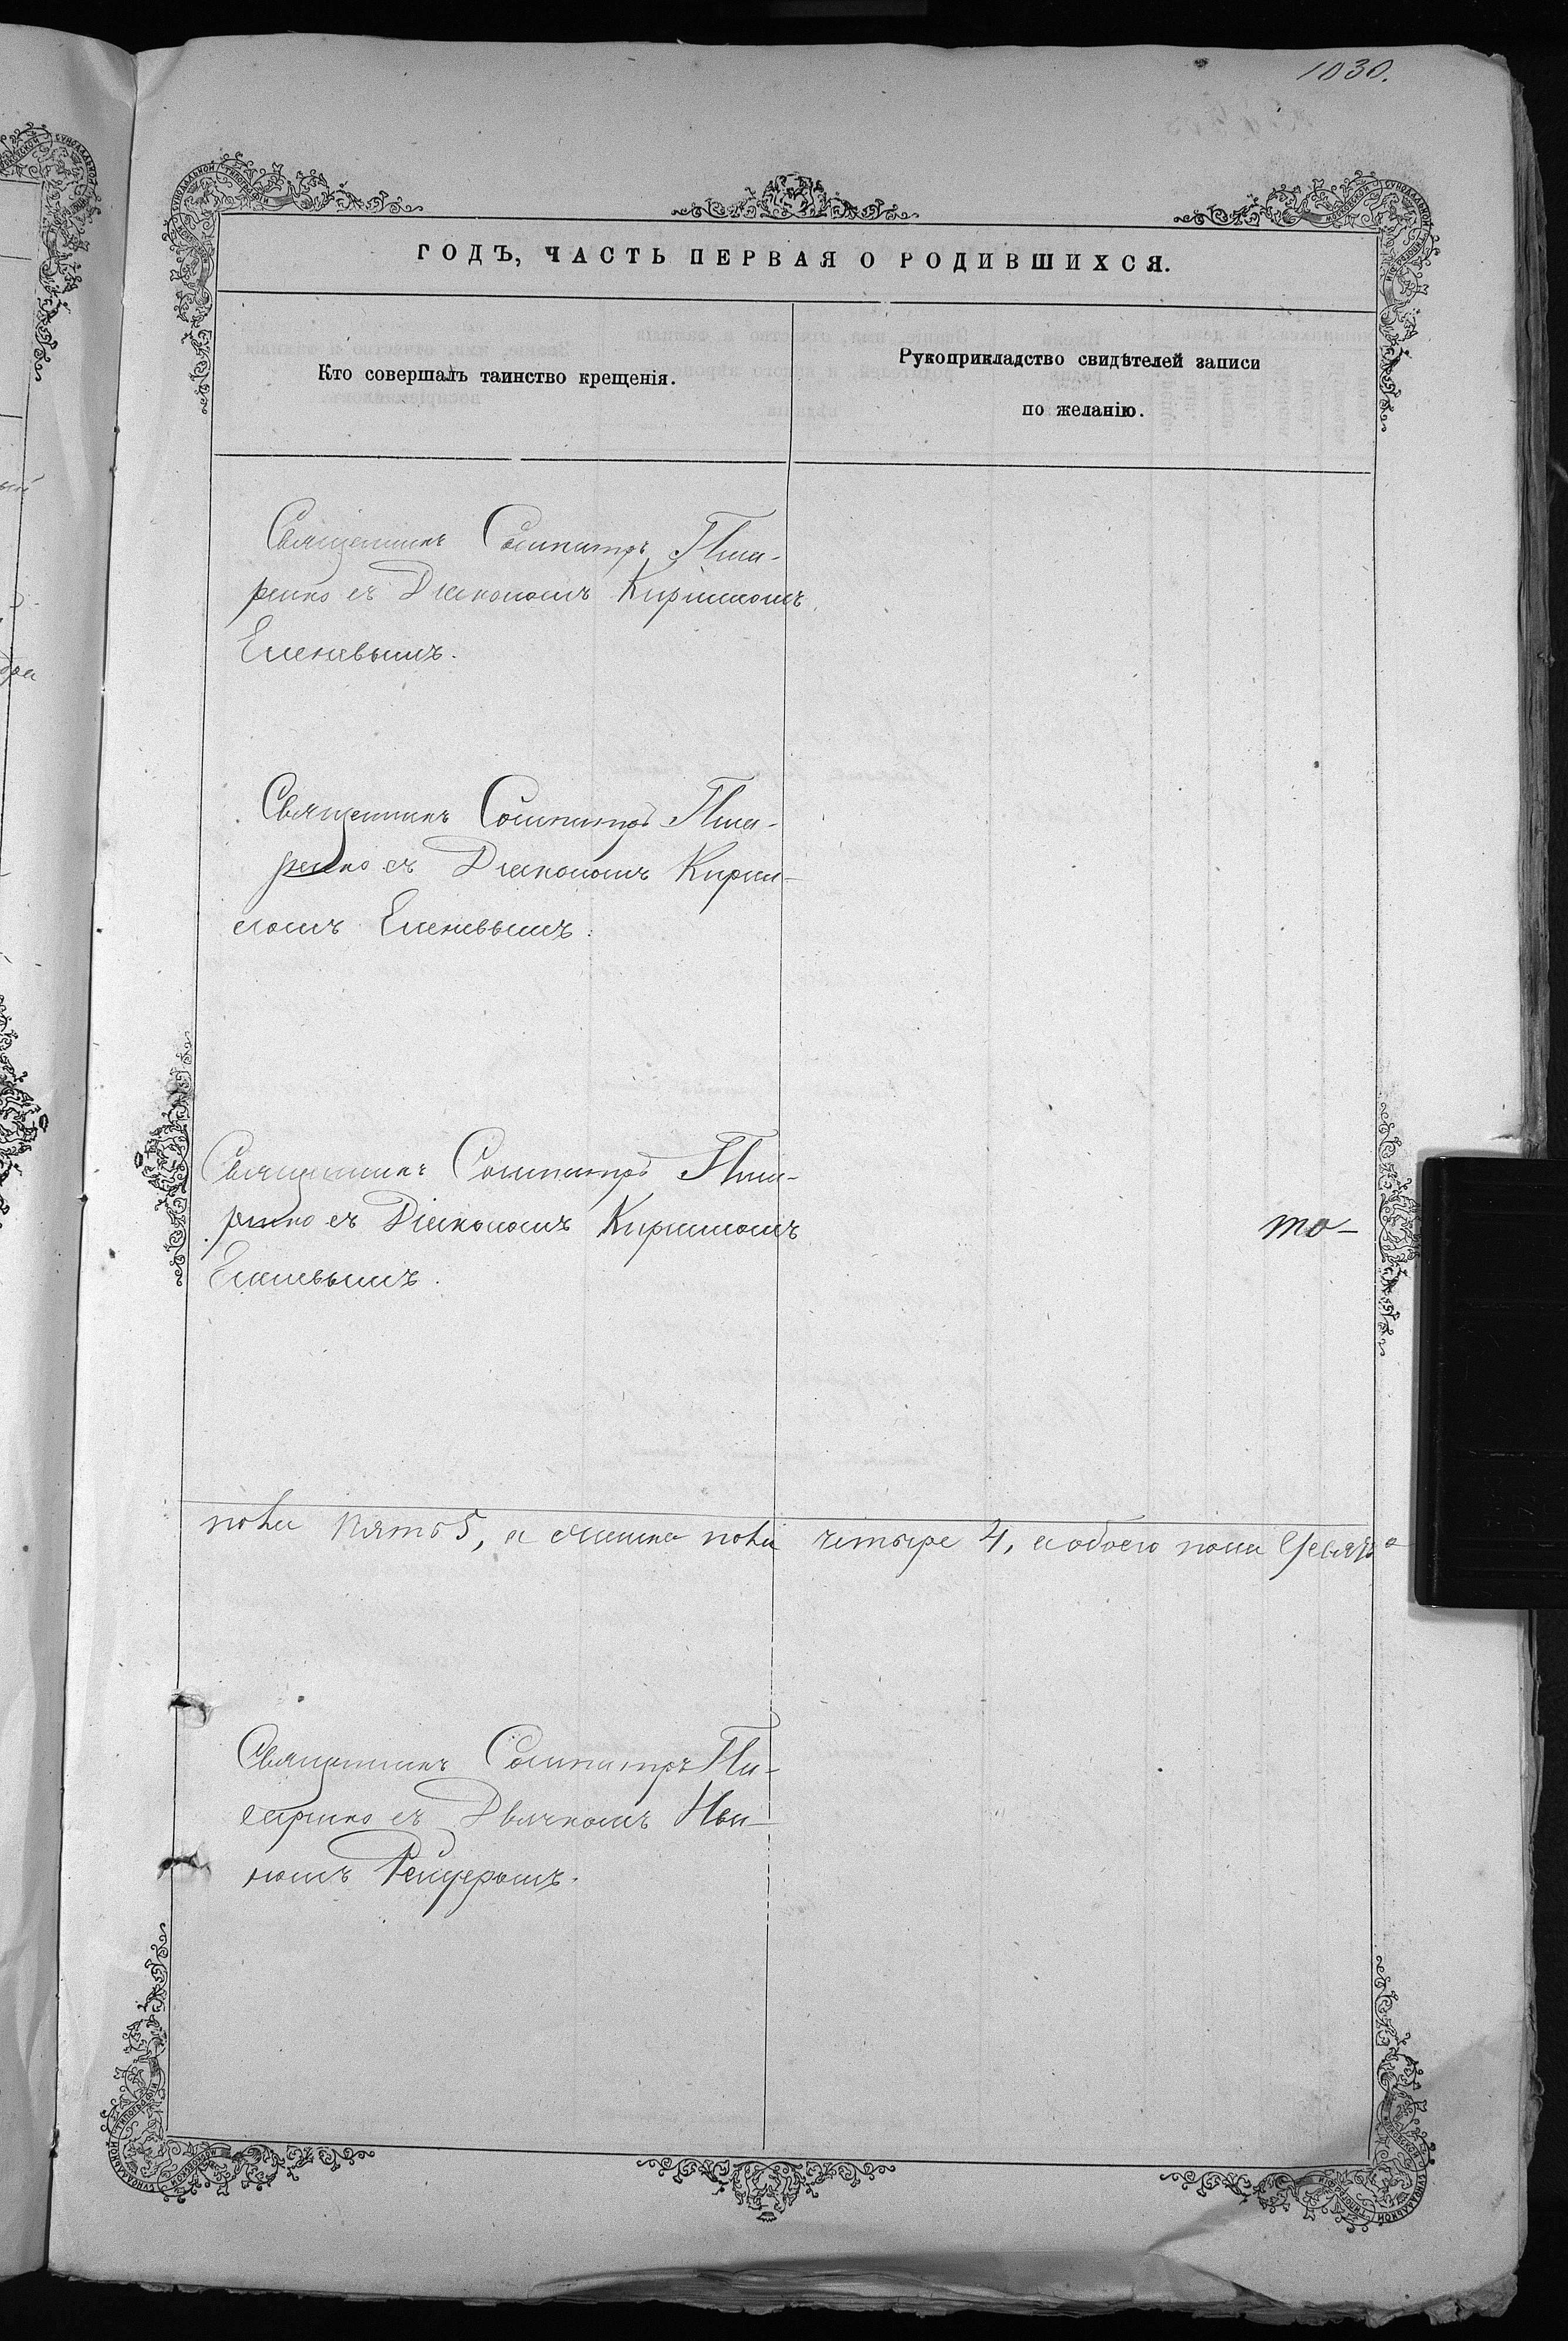 1030.
ГОДЪ, ЧАСТЬ ПЕРВАЯ О РОДИВШИХСЯ.
Кто совершалъ таинство крещенія.
Рукоприкладство свидѣтелей записи
по желанію.
Священникъ Сосипатръ Писа-
ренко съ Діакономъ Кирилломъ
Еленевымъ.
Священникъ Сосипатръ Писа-
ренко съ Діакономъ Кирил-
ломъ Еленевымъ.
Священникъ Сосипатръ Писа-
ренко съ Діакономъ Кирилломъ
Еленевымъ.
то-
пола пять 5, а женска пола четыре 4, а обоего пола девять
Священникъ Сосипатръ Пи-
саренко съ Дьячкомъ Ива-
номъ